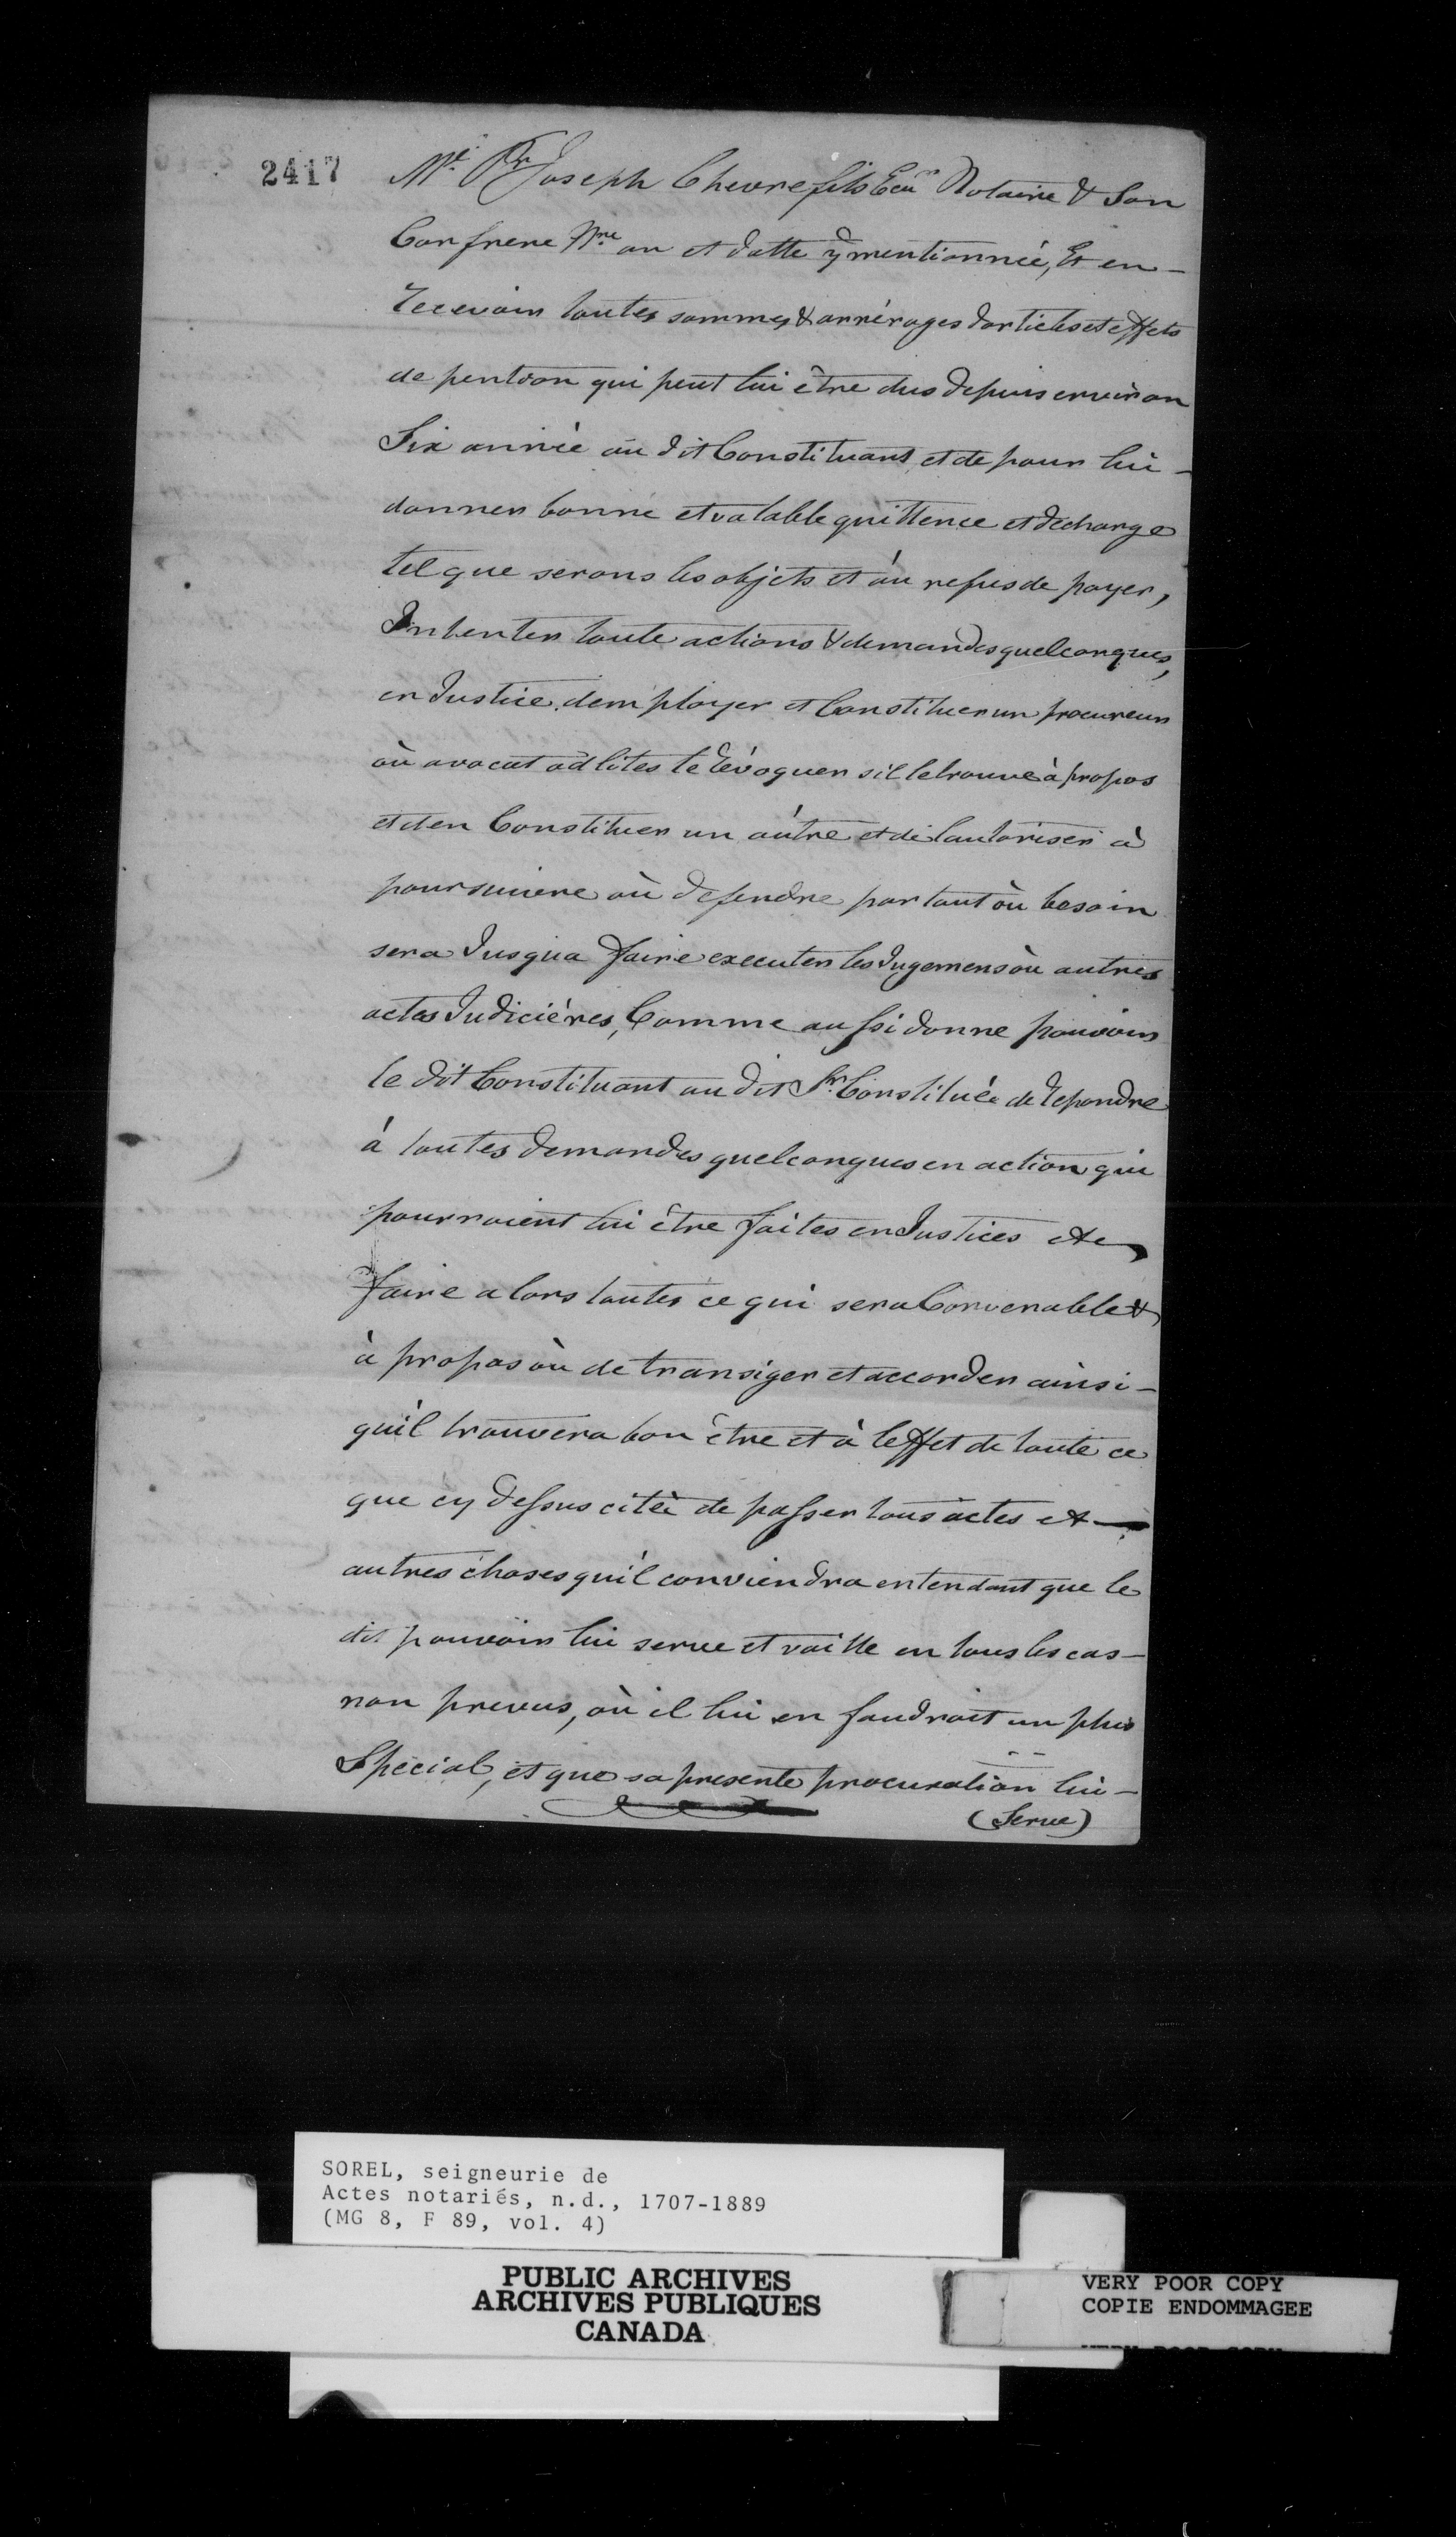 2417
Mt. Pr Joseph Chevrefils Ecur Notaire & Son
Confrere Nre an et datte ÿ mentionnée, Et en-
recevoir toutes sommes & arrérages darticles et effets
de pention qui peut lui être dus depuis environ
Six année au dit Constituant, et de pour lui-
donner bonne et valable quittence et décharge
tel que serons les objets et àu refus de payer,
Intenter toute actions & demandes quelconques,
en Justice, demployer et Constituer un procureur
où avocat ad lites le révoquer sil le trouve à propos
et den Constituer un aûtre et de lautoriser à
poursuivre où defendre par tout où besoin
sera Jusqua faire executer les Jugemens où autres
actes Judicières, Comme aussi donne pouvoir
le dit Constituant au dit Sr. Constituée de repondre
à toutes demandes quelconques en action qui
pourroient lui être faites en Justices et de
faire alors toutes ce qui sera Convenable &
à propos où de transiger et accorder ainsi-
quil trouvera bon être et à leffet de toute ce
que cy dessus citée de passer tous actes et
autres choses quil conviendra entendant que le
dit pouvoir lui serve et vaille en tous les cas-
non prevus, où il lui en faudroit un plus
Spécial, et que sa presente procuration lui-
(Serve)
SOREL, seigneurie de
Actes notariés, n.d., 1707-1889
(MG 8, F 89, vol. 4)
PUBLIC ARCHIVES
ARCHIVES PUBLIQUES
CANADA
VERY POOR COPY
COPIE ENDOMMAGEE
VERY POOR COPY